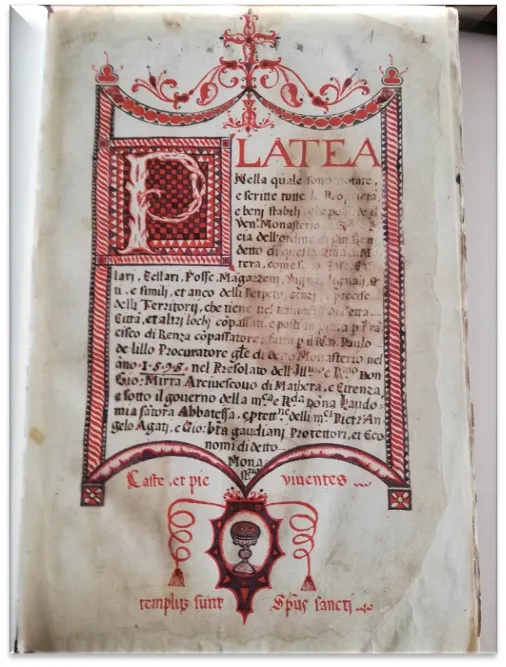 PLATEA
Nella quale sono notate,
e scritte tutte le
e beni stabili, che
Ven. Monasterio
cia dell'ordine di san Bene
detto di questa Città di Ma
tera, come sono Case,
lari, Cellari, Fosse, Magazzeni, Vigne,
ti, e simili, et anco delli Perpetui censi, e precise
delli Territorij, che tiene nel tenimento di detta
Città, et altri lochi cõpassati, e posti in pianta p Frã
cisco di Renza cõpassatore, fatta p il R. Paulo
de lillo Procuratore gñle di detto Monasterio nel
año 1598, nel Presolato dell'Ill.mo e R.mo Don
Gio: Mirra Arcivescovo di Mathera, e Cirenza,
e sotto il governo della m.ca e R.da Dõna Laudo-
mia Abbatessa, e delli m.ci Pietr'An
gelo Agati, e Gio: bta gaudiani Protettori, et Eco
nomi di detto
Mona
st.rio
Caste, et pie viventes
templũ sunt Spũs sancti